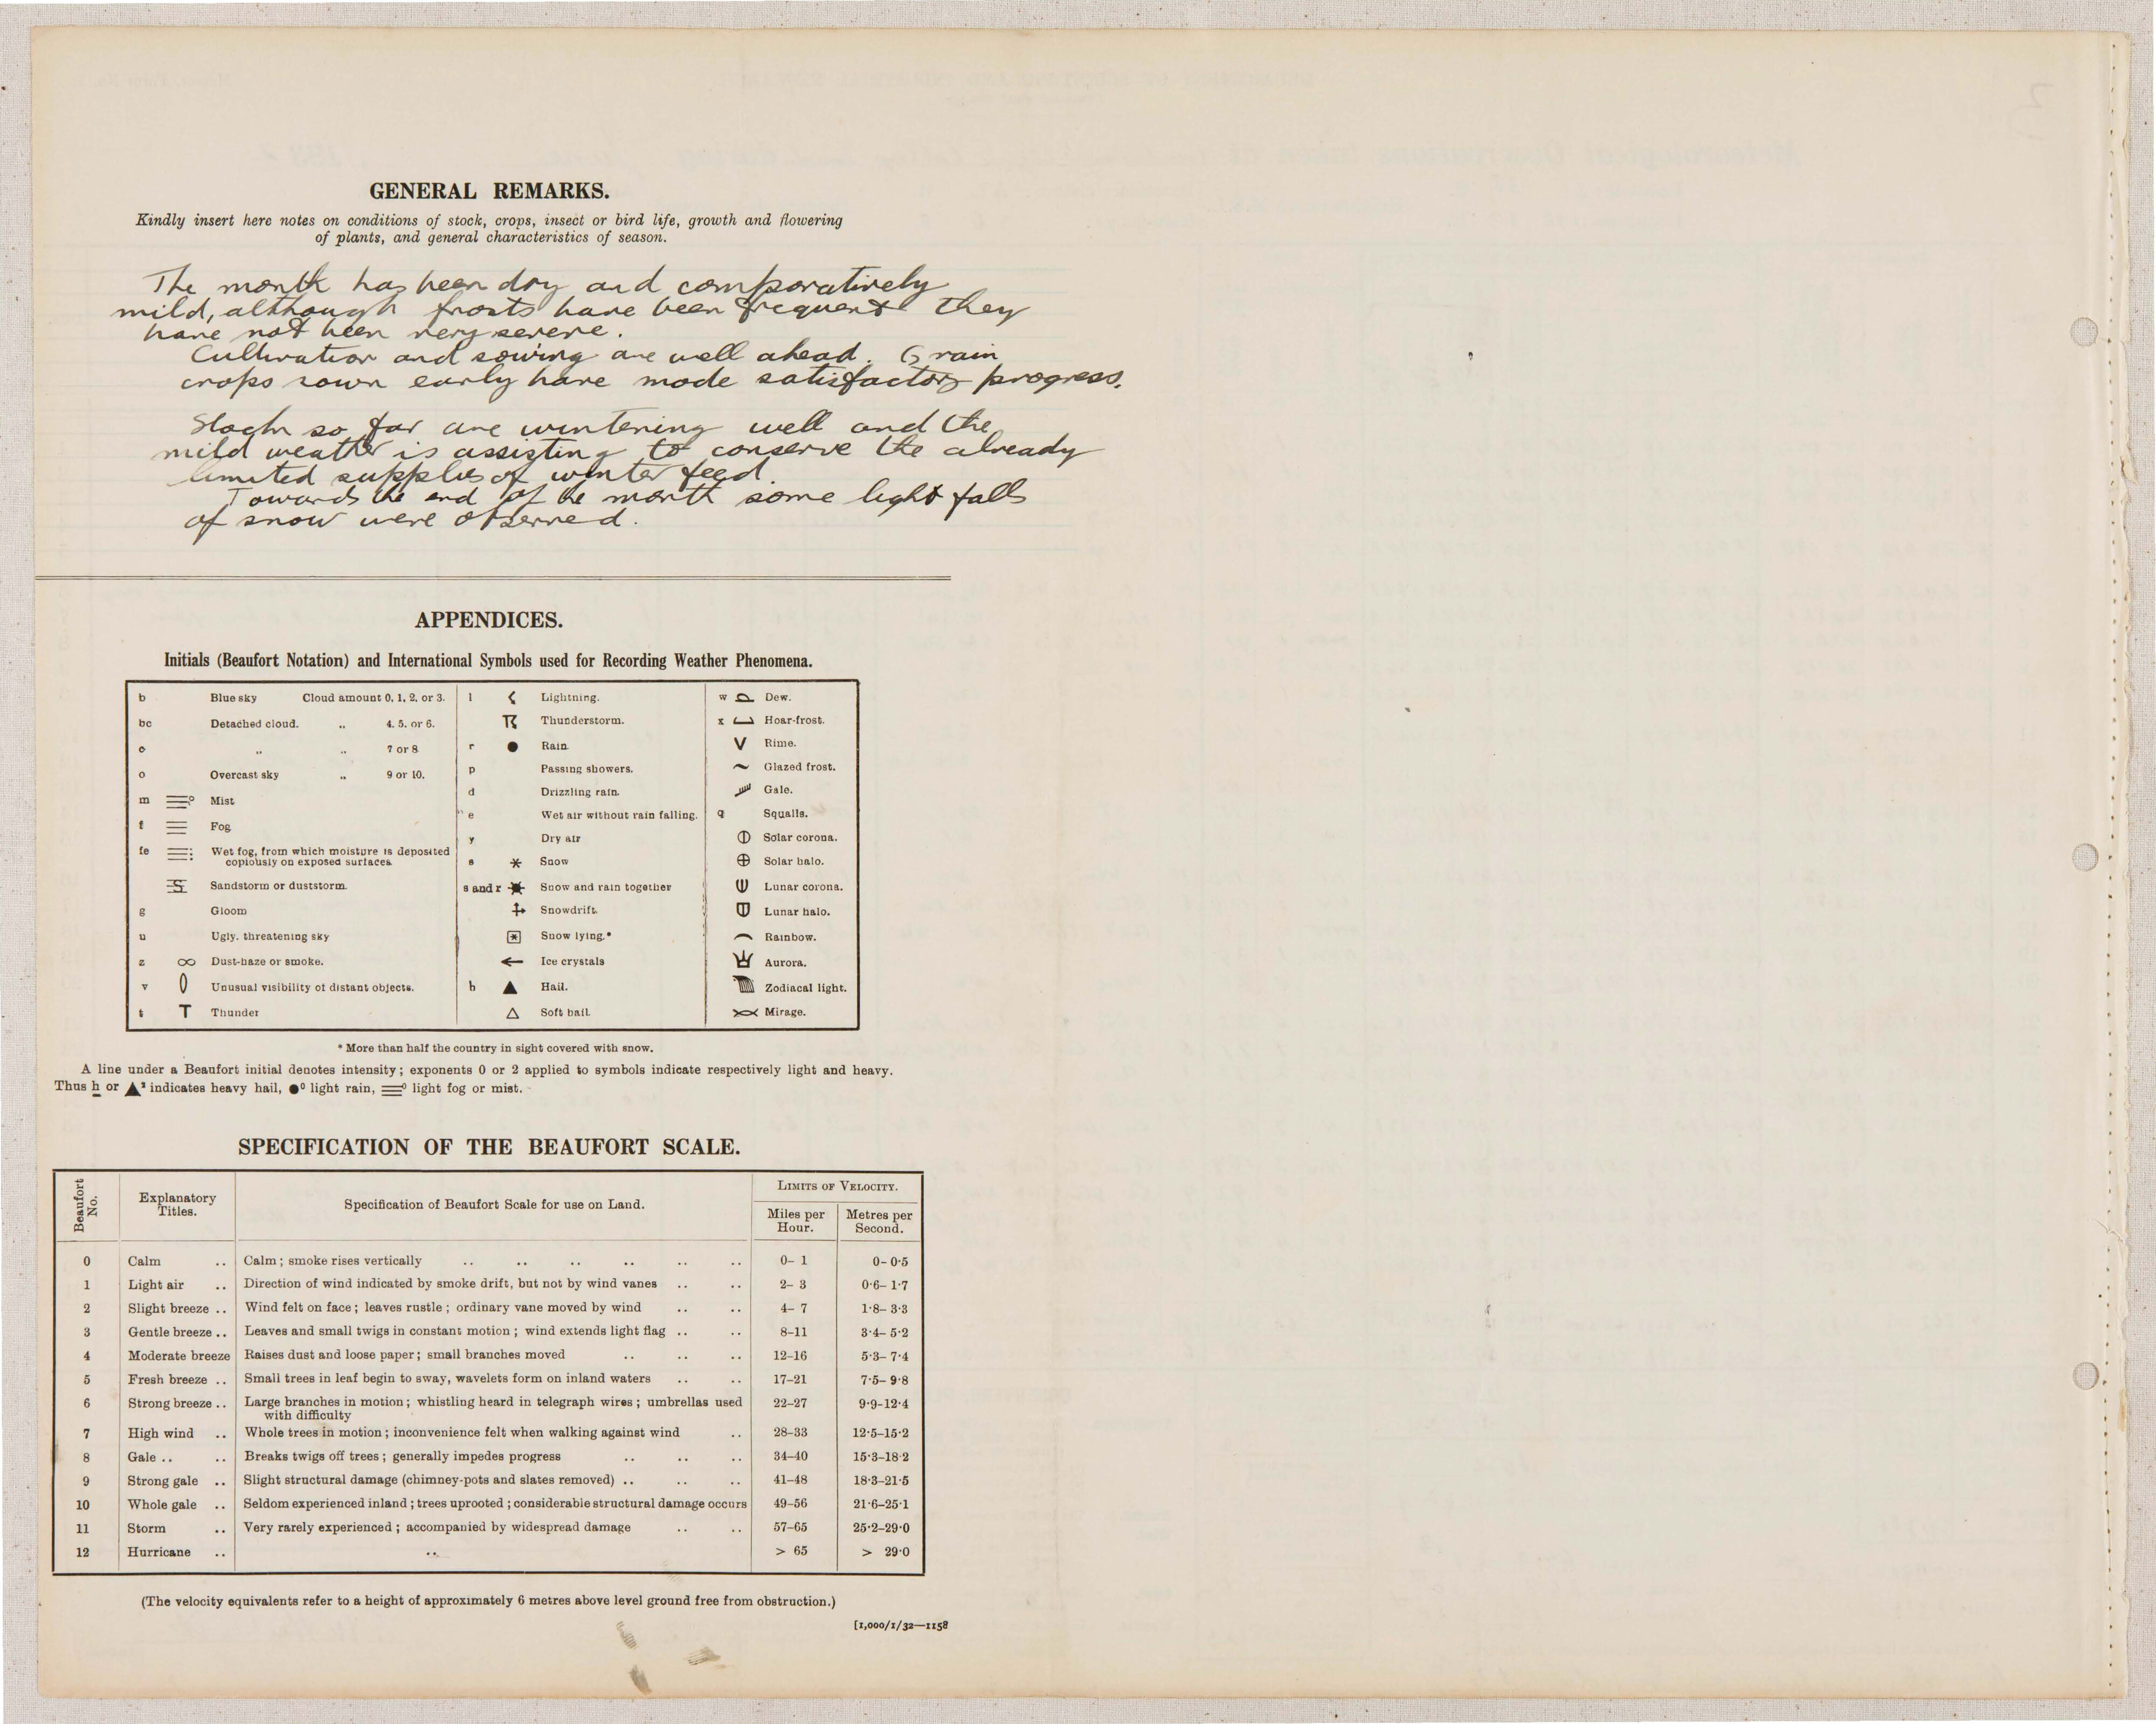 GENERAL REMARKS.
Kindly insert here notes on conditions of stock, crops, insect or bird life, growth and flowering
of plants, and general characteristics of season.
The month has been dry and comparatively
mild, although frosts have been frequent they
have not been very severe.
Cultivation and sowing are well ahead. Grain
crops sown early have made satisfactory progress.
Stock so far are wintering well and the
mild weather is assisting to conserve the already
limited supplies of winter feed.
Towards the end of the month some light falls
of snow were observed.
APPENDICES.
Initials (Beaufort Notation) and International Symbols used for Recording Weather Phenomena.
b Blue sky Cloud amount 0, 1, 2, or 3. l Lightning. w Dew.
bc Detached cloud. ,, 4, 5, or 6. Thunderstorm. x Hoar-frost.
c ,, ,, 7 or 8 r ● Rain. V Rime.
o Overcast sky ,, 9 or 10. p Passing showers. Glazed frost.
m Mist d Drizzling rain. Gale.
f Fog e Wet air without rain falling. q Squalls.
fe Wet fog, from which moisture is deposited y Dry air Solar corona.
copiously on exposed surfaces. s Snow Solar halo.
Sandstorm or duststorm. s and r Snow and rain together Lunar corona.
g Gloom Snowdrift. Lunar halo.
u Ugly, threatening sky Snow lying.* Rainbow.
z ∞ Dust-haze or smoke. Ice crystals Aurora.
v Unusual visibility of distant objects. h ▲ Hail. Zodiacal light.
t T Thunder △ Soft hail. Mirage.
* More than half the country in sight covered with snow.
A line under a Beaufort initial denotes intensity; exponents 0 or 2 applied to symbols indicate respectively light and heavy.
Thus h or ▲² indicates heavy hail, ●⁰ light rain, ≡⁰ light fog or mist.
SPECIFICATION OF THE BEAUFORT SCALE.
Beaufort No. Explanatory Titles. Specification of Beaufort Scale for use on Land. LIMITS OF VELOCITY.
Miles per Hour. Metres per Second.
0 Calm .. Calm; smoke rises vertically .. .. .. .. .. .. 0– 1 0– 0·5
1 Light air .. Direction of wind indicated by smoke drift, but not by wind vanes .. .. 2– 3 0·6– 1·7
2 Slight breeze .. Wind felt on face; leaves rustle; ordinary vane moved by wind .. .. 4– 7 1·8– 3·3
3 Gentle breeze .. Leaves and small twigs in constant motion; wind extends light flag .. .. 8–11 3·4– 5·2
4 Moderate breeze Raises dust and loose paper; small branches moved .. .. .. 12–16 5·3– 7·4
5 Fresh breeze .. Small trees in leaf begin to sway, wavelets form on inland waters .. .. 17–21 7·5– 9·8
6 Strong breeze .. Large branches in motion; whistling heard in telegraph wires; umbrellas used 22–27 9·9–12·4
with difficulty
7 High wind .. Whole trees in motion; inconvenience felt when walking against wind .. 28–33 12·5–15·2
8 Gale .. .. Breaks twigs off trees; generally impedes progress .. .. .. 34–40 15·3–18·2
9 Strong gale .. Slight structural damage (chimney-pots and slates removed) .. .. .. 41–48 18·3–21·5
10 Whole gale .. Seldom experienced inland; trees uprooted; considerable structural damage occurs 49–56 21·6–25·1
11 Storm .. Very rarely experienced; accompanied by widespread damage .. .. 57–65 25·2–29·0
12 Hurricane .. .. > 65 > 29·0
(The velocity equivalents refer to a height of approximately 6 metres above level ground free from obstruction.)
[1,000/1/32—1158